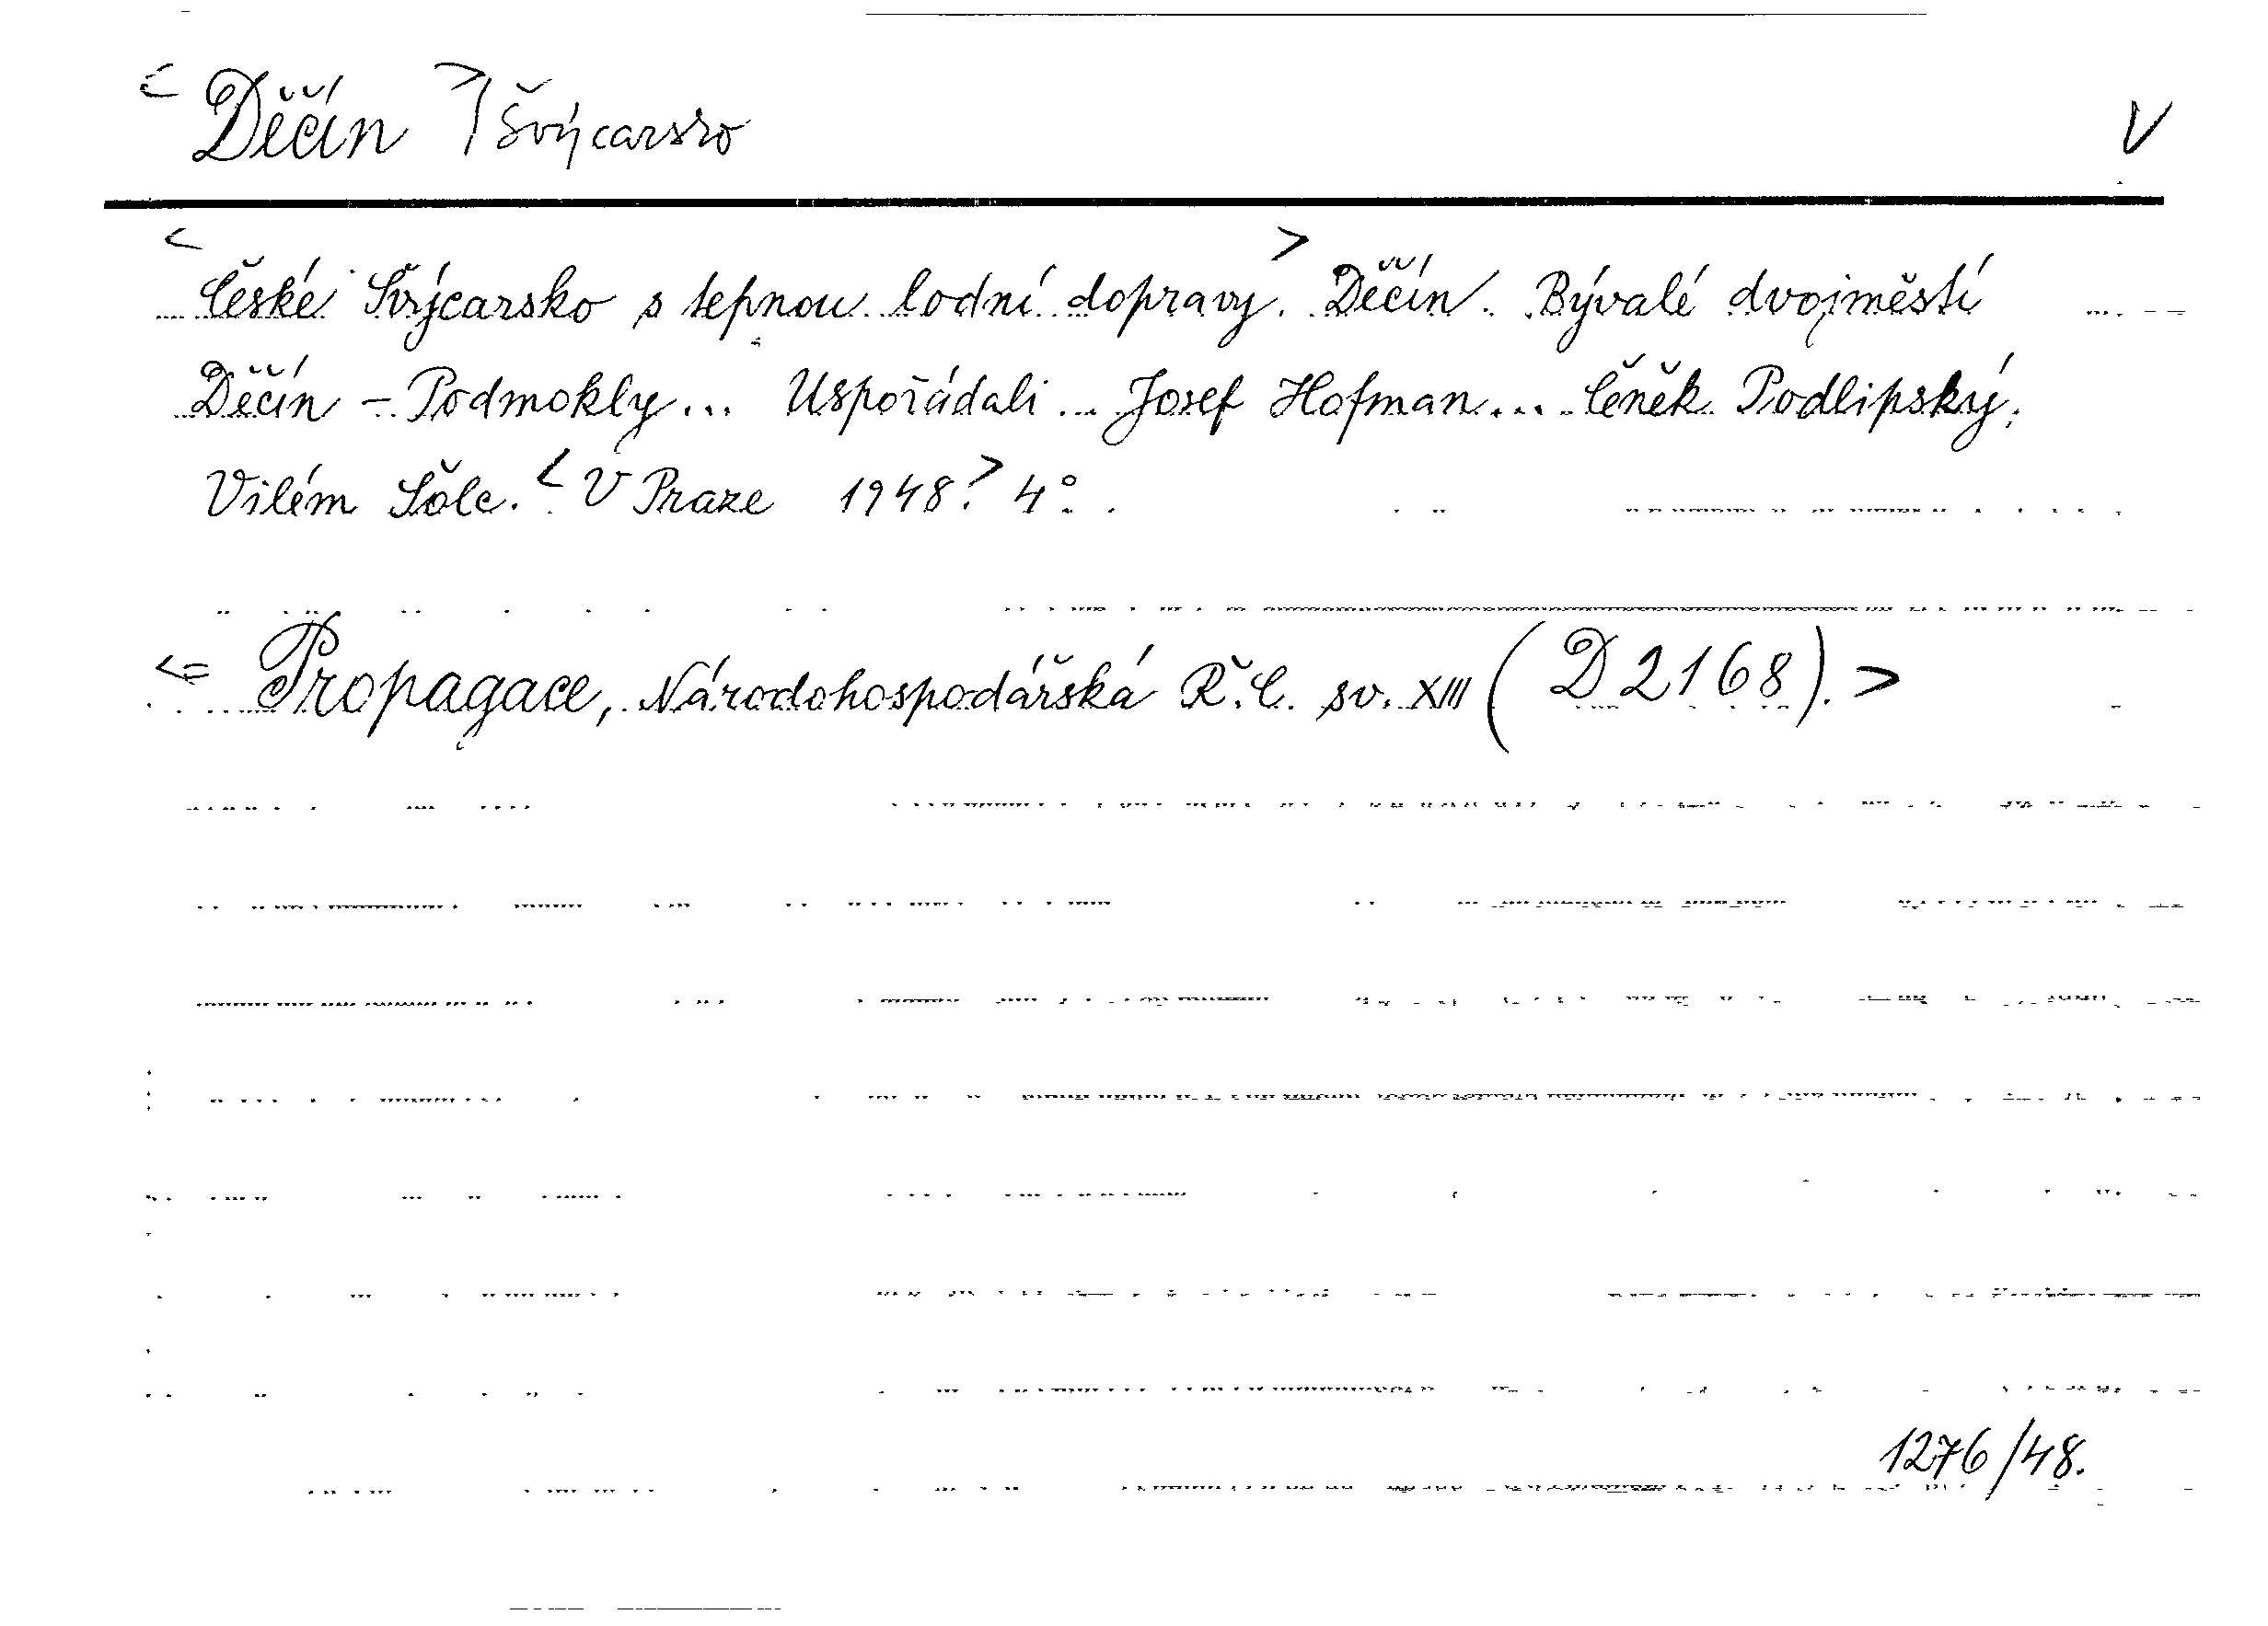 < Děčín > / Švýcarsko V
< České Švýcarsko s tepnou lodní dopravy. > Děčín. Bývalé dvojměstí
Děčín - Podmokly... Uspořádali... Josef Hofman... Čeněk Podlipský.
Vilém Šolc. < V Praze 1948. > 4°.
<= Propagace, Národohospodářská R.Č. sv. XIII (D 2168). >
1276/48.